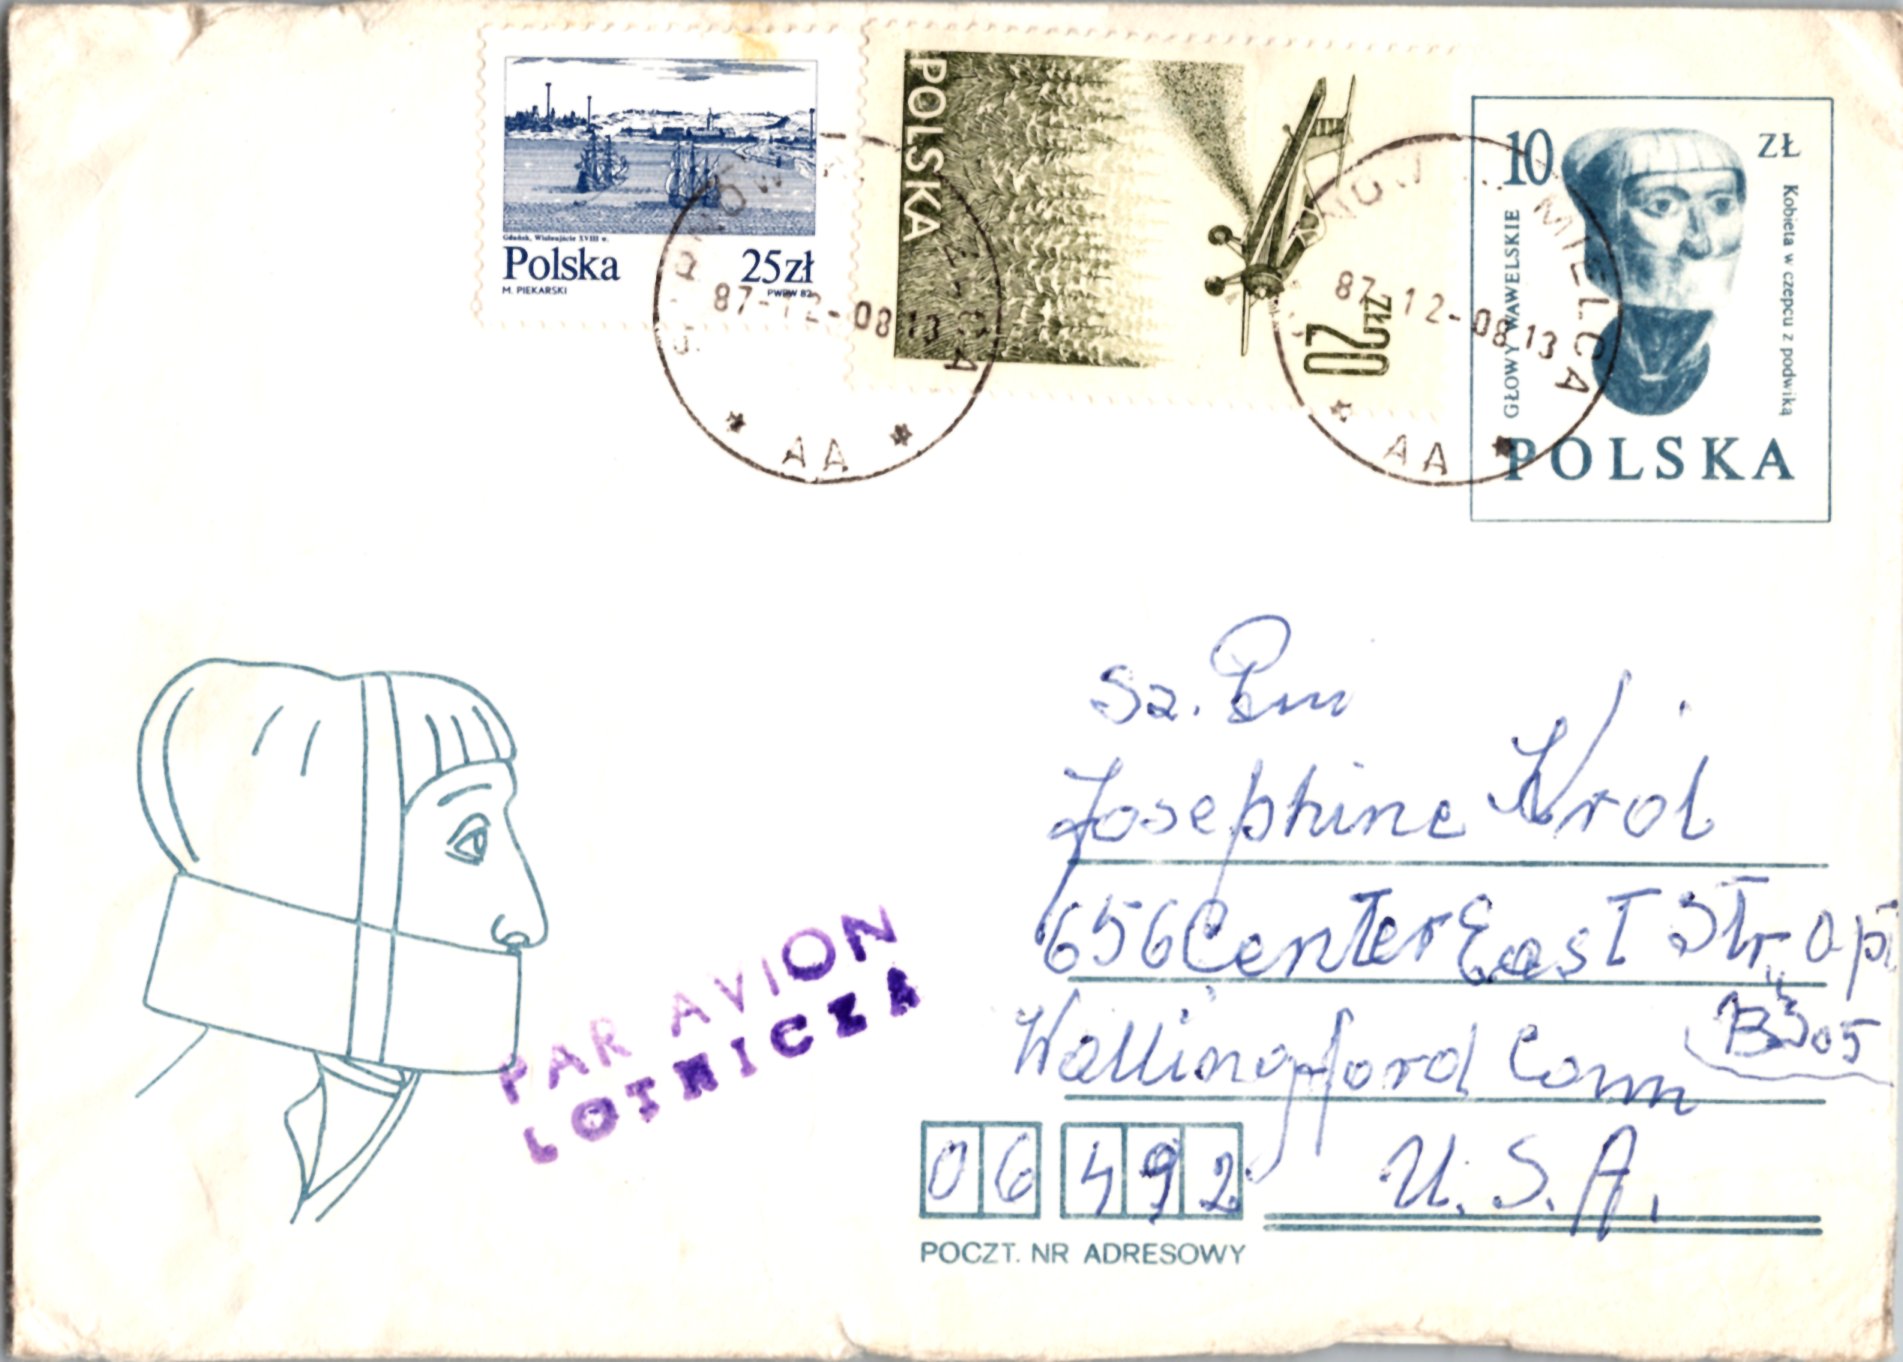 Gdańsk, Wisłoujście XVIII w.
Polska 25zł
M. PIEKARSKI PWPW 82
POLSKA
20 ZŁ
10 ZŁ
GŁOWY WAWELSKIE
Kobieta w czepcu z podwiką
POLSKA
87-12-08 13
AA
MIELCA
87-12-08 13
AA
Sz. Pani
Josephine Krol
656 Center East Str apt
B 305
Wallingford Conn
PAR AVION
LOTNICZA
06 492
U. S. A.
POCZT. NR ADRESOWY